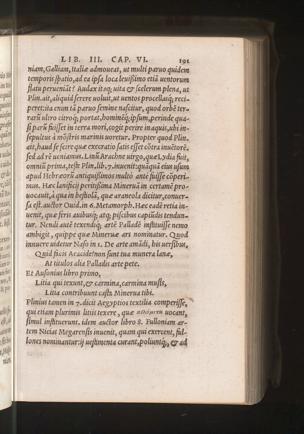 LIB. III. CAP. VI. 191
niam, Galliam, Italiæ admoueat, ut multi paruo quidem
temporis spatio, ad ea ipsa loca leuissimo etiã uentorum
flatu perueniãt! Audax itaq; uita & scelerum plena, ut
Plin. ait, aliquid serere uoluit, ut uentos procellasq; reci-
peret: ita enim tã paruo semine nascitur, quod orbẽ ter-
rarũ ultro citroq; portat, hominẽq; ipsum, perinde qua-
si parũ fuisset in terra mori, cogit perire in aquis, ubi in-
sepultus à mõstris marinis uoretur. Propter quod Plin.
ait, haud se scire quæ execratio satis esset cõtra inuẽtorẽ.
sed ad rẽ ueniamus. Linũ Arachne uirgo, quæ Lydia fuit,
omniũ prima, teste Plin. lib. 7. inuenit: quãquã eius usum
apud Hebræorũ antiquissimos multo ante fuisse cõperi-
mus. Hæc lanificij peritissima Mineruã in certamẽ pro-
uocauit, à qua in bestiolã, quæ araneola dicitur, conuer-
sa est. autor Ouid. in 6. Metamorph. Hæc eadẽ retia in-
uenit, quæ feris auibusq; atq; piscibus capiũdis tendun-
tur. Nendi autẽ texendiq; artẽ Palladẽ instituisse nemo
ambigit, quippe quæ Mineruæ ars nominatur. Quod
innuere uidetur Naso in 1. De arte amãdi, his uersibus,
Quid facis Aeacide? non sunt tua munera lanæ,
At titulos alia Palladis arte pete.
Et Ausonius libro primo,
Licia qui texunt, & carmina, carmina musis,
Licia contribuunt casta Minerua tibi.
Plinius tamen in 7. dicit Aegyptios textilia comperisse,
qui etiam plurimis licijs texere, quæ uocant,
simul instituerunt. idem autor libro 8. Fulloniam ar-
tem Nicias Megarensis inuenit, quam qui exercent, ful-
lones nominantur: ij uestimenta curant, poliuntq;, & ad